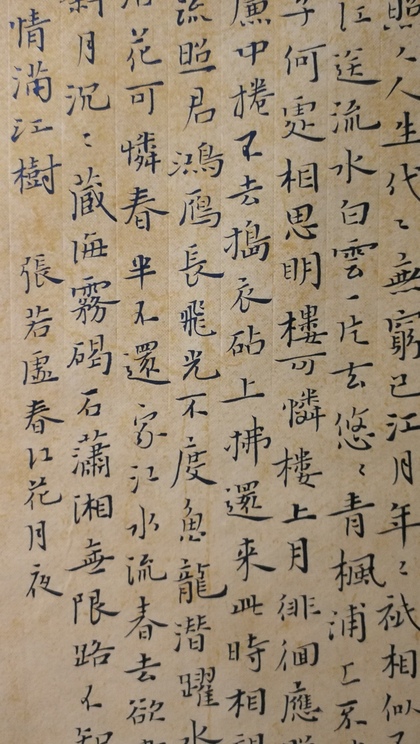 照〻人生代〻無窮已江月年〻祇相似
江送流水白雲一片去悠〻青楓浦上不
子何處相思明樓可憐樓上月徘徊應
簾中捲不去搗衣砧上拂還來此時相
流照君鴻鴈長飛光不度魚龍潛躍水
花可憐春半不還家江水流春去欲
斜月沉〻藏海霧碣石瀟湘無限路不知
情滿江樹　張若虛春江花月夜